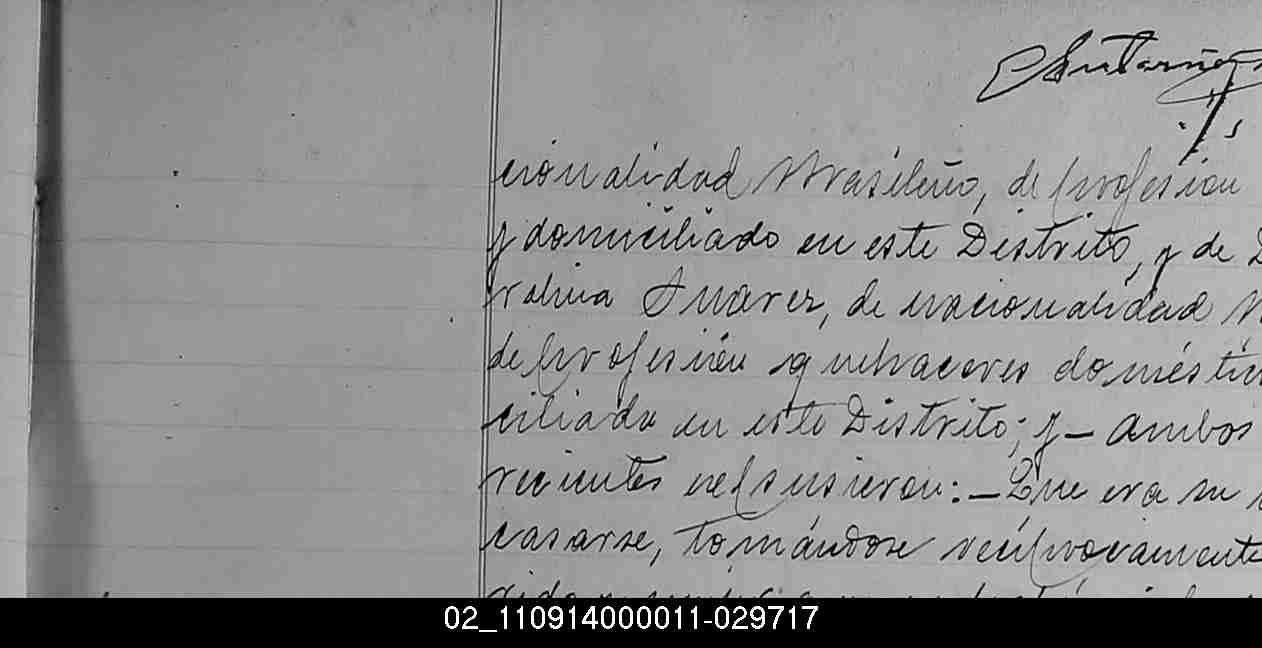 cionalidad Brasileño, de profesion
y domiciliado en este Distrito, y de
Suarez, de nacionalidad
de profesión quehaceres doméstic
ciliada en este Distrito; y – ambos
recientes expusieron: – Que era su
casarse, tomándose recíprocamente
02_110914000011-029717